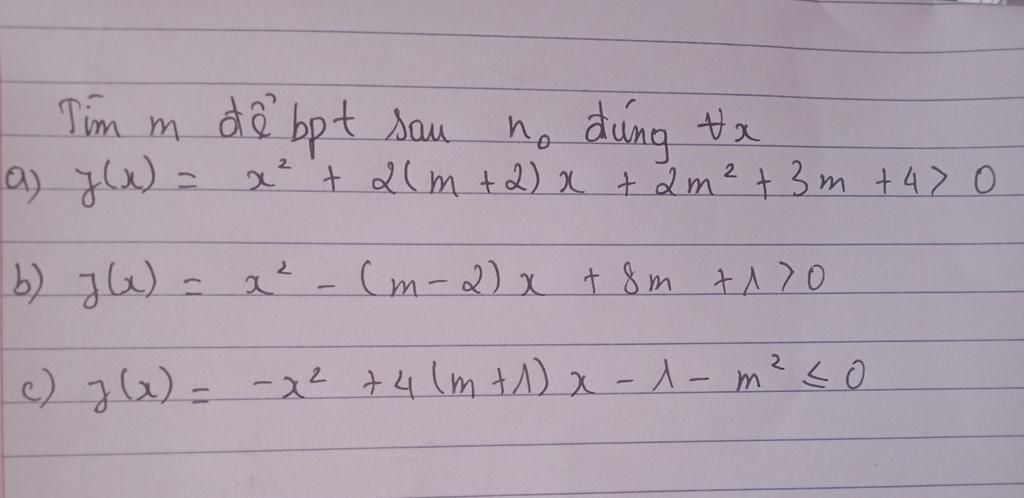 Tìm m để bpt sau n₀ đúng ∀x
a) f(x) = x² + 2(m+2)x + 2m² + 3m + 4 > 0
b) f(x) = x² - (m-2)x + 8m + 1 > 0
c) f(x) = -x² + 4(m+1)x - 1 - m² ≤ 0